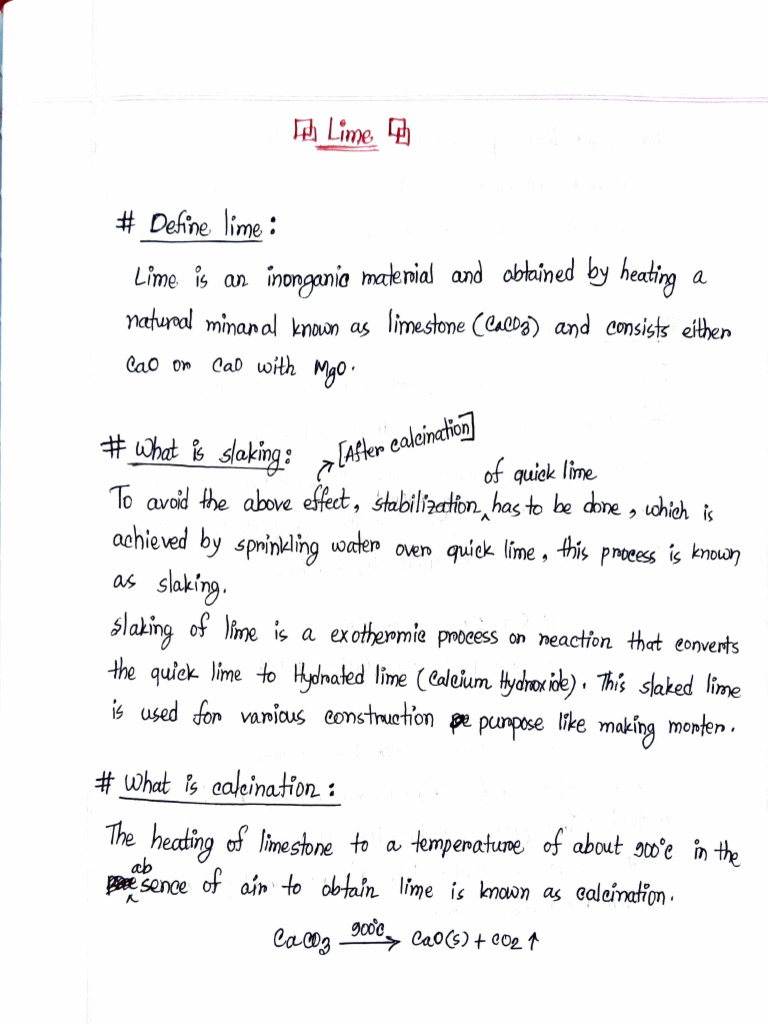 Lime
# Define lime:
Lime is an inorganic material and obtained by heating a
natural minaral known as limestone (CaCO3) and consists either
CaO or CaO with MgO.
# What is slaking:
[After calcination]
of quick lime
To avoid the above effect, stabilization has to be done, which is
achieved by sprinkling water over quick lime, this process is known
as slaking.
slaking of lime is a exothermic process or reaction that converts
the quick lime to Hydrated lime (Calcium Hydroxide). This slaked lime
is used for various construction purpose like making morter.
# What is calcination:
The heating of limestone to a temperature of about 900°c in the
ab
sence of air to obtain lime is known as calcination.
900°c
CaCO3 → CaO(s) + CO2 ↑